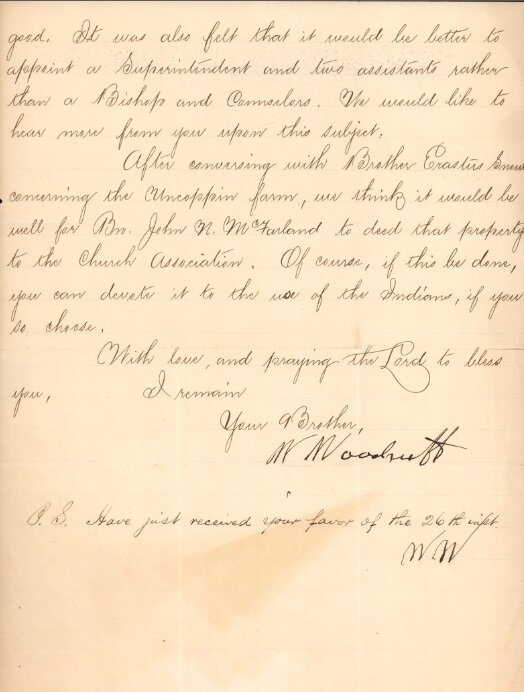 good. It was also felt that it would be better to
appoint a Superintendent and two assistants rather
than a Bishop and Counselors. We would like to
hear more from you upon this subject.
After conversing with Brother Erastus Snow
concerning the Uncoppin farm, we think it would be
well for Bro. John N. McFarland to deed that property
to the Church Association. Of course, if this be done,
you can devote it to the use of the Indians, if you
so choose.
With love, and praying the Lord to bless
you, I remain
Your Brother,
W Woodruff
P.S. Have just received your favor of the 26th inst.
WW